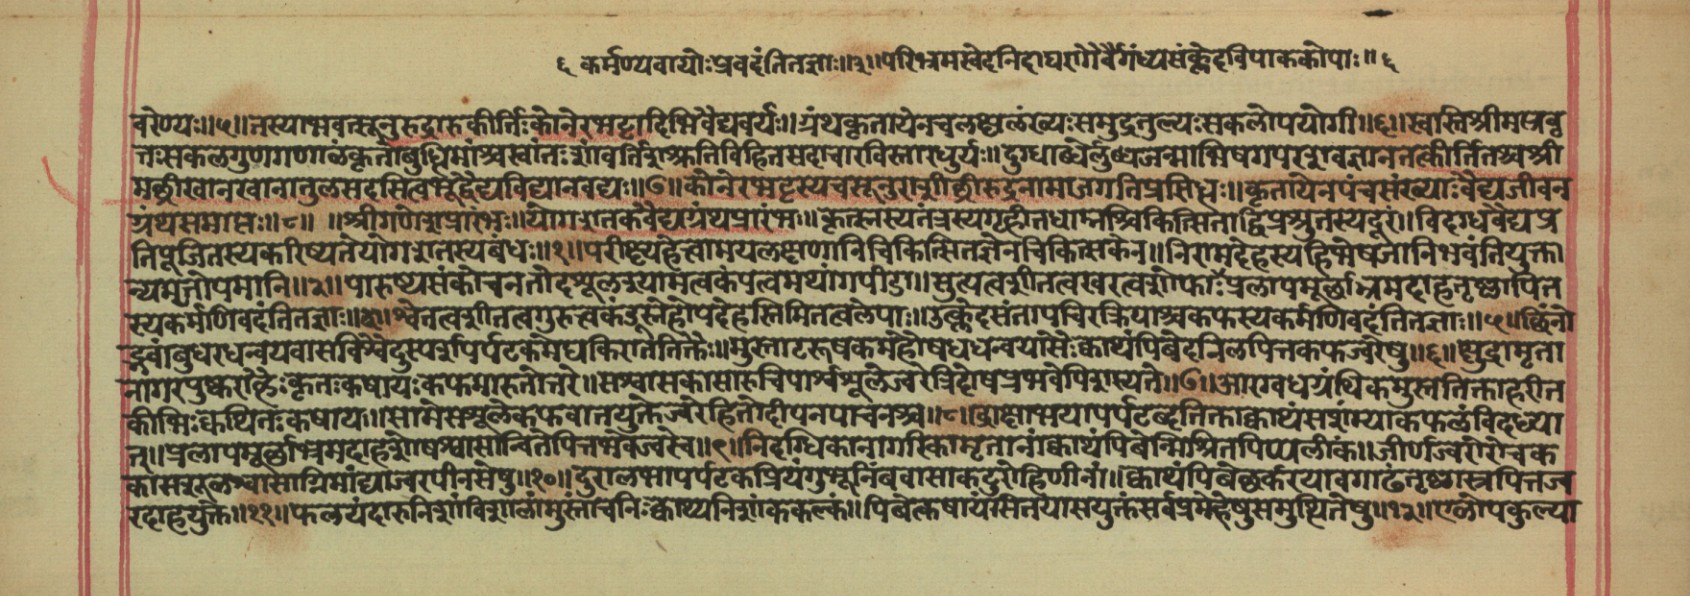 ६ कर्मण्यवायोःप्रवदंतितज्ञाः॥३॥परिभ्रमस्वेदनिदाघरागोवैर्गंध्यसंक्लेदविपाककोपाः॥ ६
वरेण्यः॥५॥तस्याभवत्सूनुरुदारकीर्तिःकोनेरभट्टादिभिवैद्यवर्यः॥ग्रंथकृतायेनचलक्ष्मलंख्यःसमुद्रतुल्यःसकलोपयोगी॥६॥स्वस्तिश्रीमत्प्रवृ
त्तःसकलगुणगणालंकृतोबुधिमांश्चस्वांतःशांवर्तिशक्तिविहितसदाचारविस्तारधुर्यः॥दुग्धाब्धेर्लुब्धजन्माभिषगपरशवज्ञानतत्कीर्तितश्चश्री
मछ्रीखानखानातुलसदसितत्वभूद्वैद्यविद्यानवद्यः॥७॥कोनेरभट्टस्यचसूनुरासीछ्रीरुद्रनामाजगतिप्रसिधः॥कृतायेनपंचसंख्याःवैद्यजीवन
ग्रंथसमाप्तः॥८॥ ॥श्रीगणेशप्रारंभः॥योगशतकवैद्यग्रंथप्रारंभः॥कृत्स्नस्यतंत्रस्यगृहीतधाम्नश्चिकित्सिताद्विप्रश्रुतस्यदूरं॥विदग्धवैद्यप्र
तिपूजितस्यकरिष्यतेयोगशतस्यबंधः॥१॥परीक्ष्यहेत्वामयलक्षणानिचिकित्सितज्ञेनचिकित्सकेन॥निरामदेहस्यहिभेषजानिभवंतियुक्ता
न्यमृतोपमानि॥२॥पारुष्यसंकोचनतोदशूलश्यामत्वकंपत्वमथांगपीडा॥सुप्तत्वशीतत्वखरत्वशोफाःप्रलापमूर्छाभ्रमदाहतृष्णापित्त
स्यकर्माणिवदंतितज्ञाः॥४॥श्वेतत्वशीतत्वगुरुत्वकंडूस्नेहोपदेहस्तिमितत्वलेपाः॥उत्क्लेदसंतापचिरक्रियाश्चकफस्यकर्माणिवदंतितज्ञाः॥५॥छिंनो
द्भवांबुधरधन्वयवासविश्वैदुस्पर्शपर्पटकमेघकिराततिक्तैः॥मुस्ताटरूषकमहौषधधन्वयासैःक्वाथंपिबेदनिलपित्तकफज्वरेषु॥६॥क्षुद्रामृता
नागरपुष्कराह्वैःकृतःकषायःकफमारुतोत्तरे॥सश्वासकासारुचिपार्श्वशूलेज्वरेत्रिदोषप्रभवेपिशस्यते॥७॥आरग्वधग्रंथिकमुस्ततिक्ताहरीत
कीभिःक्वथितःकषायः॥सामेसशूलेकफवातयुक्तेज्वरेहितोदीपनपाचनश्च॥८॥द्राक्षाभयापर्पटब्दतिक्ताक्वाथंसशंम्याकफलंविदध्या
त्॥प्रलापमूर्छाभ्रमदाहशोषश्वासान्वितेपित्तभवेज्वरेच॥९॥निदग्धिकानागरिकामृतानांक्वाथंपिबेन्मिश्रितपिप्पलीकं॥जीर्णज्वरारोचक
कासशूलश्वासाग्निमांद्याज्वरपीनसेषु॥१०॥दुरालभापर्पटकप्रियंगुभूनिंबवासाकटुरोहिणीनां॥क्वाथंपिबेछर्करयावगाढंतृष्णास्रपित्तज्व
रदाहयुक्ते॥११॥फलत्रयंदारुनिशांविशालांमुस्तांचनिःक्वाथ्यनिशांककल्कं॥पिबेत्कषायंसितयासयुक्तंसर्वप्रमेहेषुसमुत्थितेषु॥१२॥एलोपकुल्या